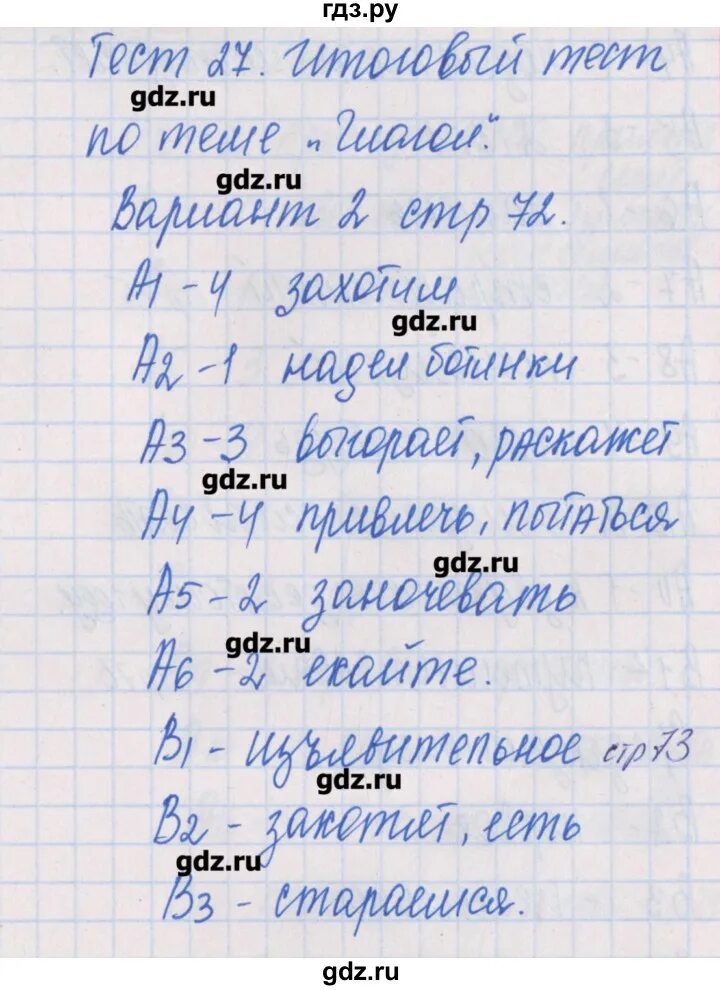 гдз.ру
Тест 27. Итоговый тест
gdz.ru
по теме „Глагол“.
gdz.ru
Вариант 2 стр 72.
А1 - 4 захотим
gdz.ru
А2 - 1 надел ботинки
А3 - 3 выгорает, раскажет
gdz.ru
А4 - 4 привлечь, пытаться
gdz.ru
А5 - 2 заночевать
gdz.ru
А6 - 2 ехайте.
В1 - изъявительное стр 73
gdz.ru
В2 - захотят, есть
gdz.ru
В3 - стараешся.
gdz.ru